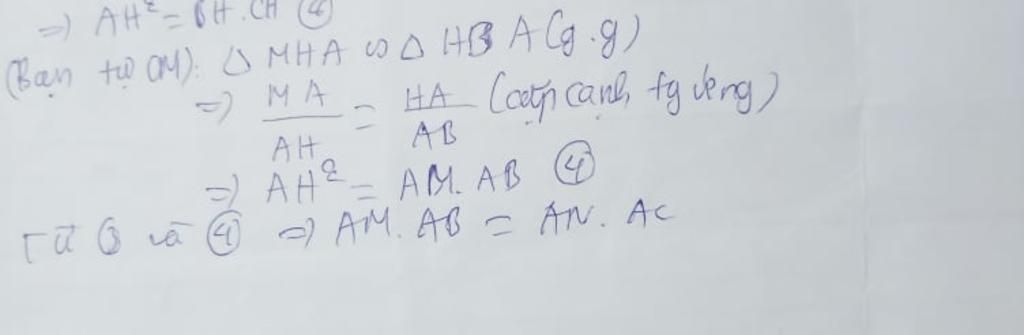 =) AH² = BH.CH ②
(Bạn tự CM): Δ MHA ∽ Δ HBA (g.g)
=) MA/AH = HA/AB (cặp cạnh tg ứng)
=) AH² = AM. AB ④
Từ ③ và ④ =) AM. AB = AN. AC